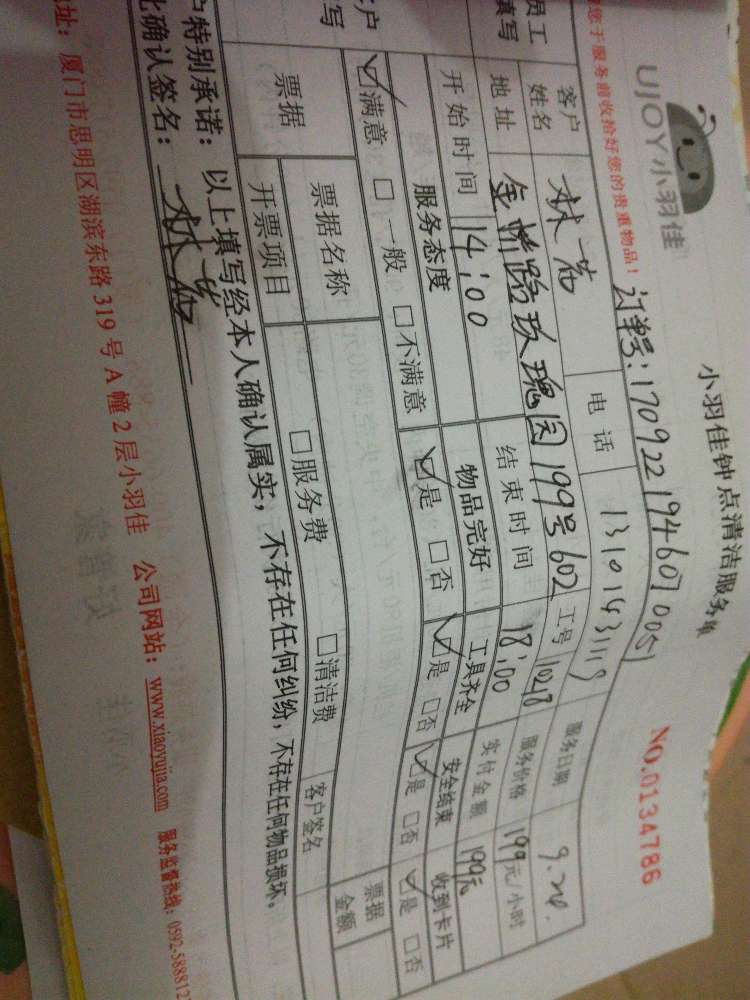 UJOY小羽佳
小羽佳钟点清洁服务单
NO.0134786
您于服务前收拾好您的贵重物品！
订单号：17092219460700051
员工
填写
客户
姓名
林芸
电话
13101431119
服务日期
9.24.
地址
金桥路玫瑰园199号602
工号
1028
服务价格
199元/小时
开始时间
14:00
结束时间
18:00
实付金额
199元
户
写
服务态度
物品完好
工具齐全
安全结束
收到卡片
☑满意 □一般 □不满意
☑是 □否
☑是 □否
☑是 □否
☑是 □否
票据
票据名称
□服务费 □清洁费
票据
金额
开票项目
客户签名
户特别承诺：以上填写经本人确认属实，不存在任何纠纷，不存在任何物品损坏。
此确认签名：林芸
址：厦门市思明区湖滨东路319号A幢2层小羽佳 公司网站：www.xiaoyujia.com 服务监督热线：0592-588812